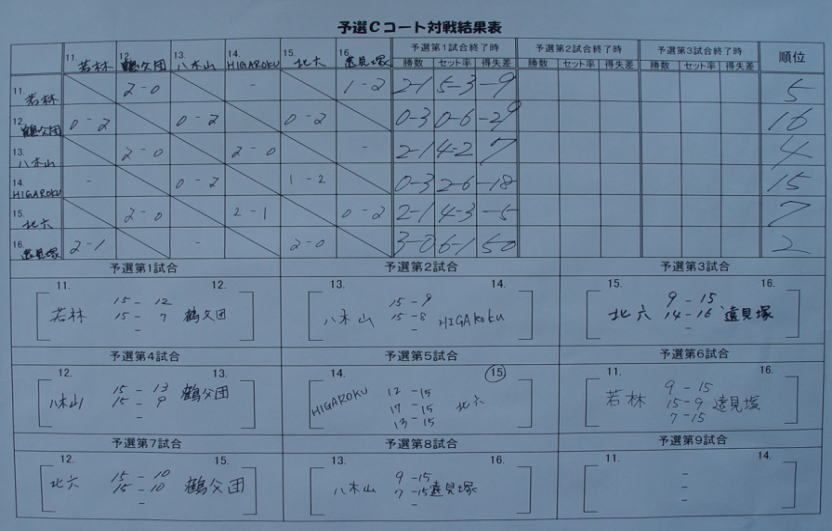 予選Cコート対戦結果表
11. 若林 12. 鶴父団 13. 八木山 14. HIGAROKU 15. 北六 16. 遠見塚 予選第1試合終了時 予選第2試合終了時 予選第3試合終了時 順位
勝数 セット率 得失差 勝数 セット率 得失差 勝数 セット率 得失差
11. 若林 2-0 - 1-2 2-1 5-3 -9 5
12. 鶴父団 0-2 0-2 0-2 0-3 0-6 -29 16
13. 八木山 2-0 2-0 - 2-1 4-2 7 4
14. HIGAROKU - 0-2 1-2 0-3 2-6 -18 15
15. 北六 2-0 2-1 0-2 2-1 4-3 -5 7
16. 遠見塚 2-1 - 2-0 3-0 6-1 50 2
予選第1試合 予選第2試合 予選第3試合
11. 12. 13. 14. 15. 16.
若林 15-12 鶴父団 八木山 15-9 HIGAROKU 北六 9-15 遠見塚
15-7 15-8 14-16
- - -
予選第4試合 予選第5試合 予選第6試合
12. 13. 14. 15 11. 16.
八木山 15-13 鶴父団 HIGAROKU 12-15 北六 若林 9-15 遠見塚
15-9 17-15 15-9
- 13-15 7-15
予選第7試合 予選第8試合 予選第9試合
12. 15. 13. 16. 11. 14.
北六 15-10 鶴父団 八木山 9-15 遠見塚 -
15-10 7-15 -
- - -